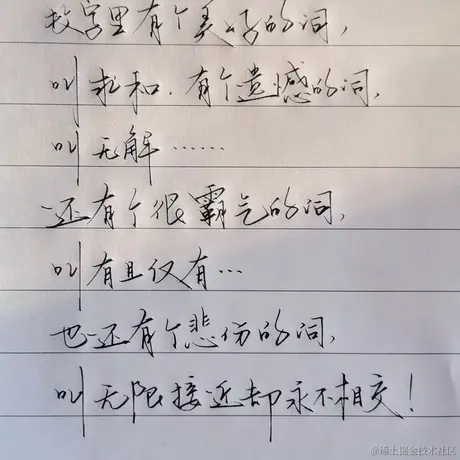 数字里有个美好的词,
叫求和.有个遗憾的词,
叫无解……
还有个很霸气的词,
叫有且仅有…
也还有个悲伤的词,
叫无限接近却永不相交!
@稀土掘金技术社区